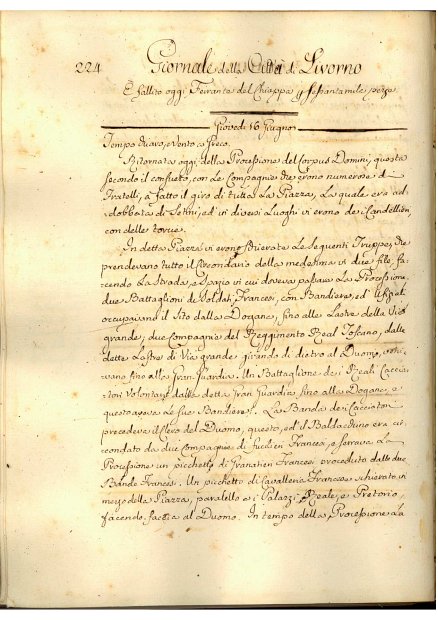 224 Giornale della Città di Livorno
È fallito oggi Ferrante del Chiappa p sessantamila pezze
Giovedì 16 Giugno
Tempo chiaro, e vento a Greco.
Ritornata oggi della Processione del Corpus Domini, questa
secondo il consueto, con le Compagnie che erono numerose di
Fratelli, à fatto il giro di tutta la Piazza, la quale era ad-
dobbata di Setini, ed in diversi Luoghi vi erono de Candellieri
con delle torcie.
In detta Piazza vi erono Schierate le seguenti Truppe, che
prendevano tutto il Circondario della medesima in due file, fa-
cendo la strada, e spazio in cui doveva passare la Processione
due Battaglioni di Soldati Francesi, con Bandiere, ed
occupavano il Sito dalla Dogana, sino alle Lastre della Via
grande; due Compagnie del Reggimento Real Toscano, dalle
dette Lastre di Via grande girando di dietro al Duomo,
sino alla Gran Guardia. Un Battaglione dei Reali Caccia-
tori Volontarj dalla detta Gran Guardia sino alla Dogana, e
questo aveva le sue Bandiere. La Banda dei Cacciatori
precedeva il Clero del Duomo, questo, ed il Baldachino era cir-
condato da due Compagnie di fucilieri Francesi, e serrava la
Processione un picchetto di Granatieri Francesi preceduto dalle due
Bande Francesi. Un picchetto di Cavalleria Francese schierato in
mezzo della Piazza, parallelo a i Palazzi Reale, e Pretorio
facendo faccia al Duomo. In tempo della Processione la